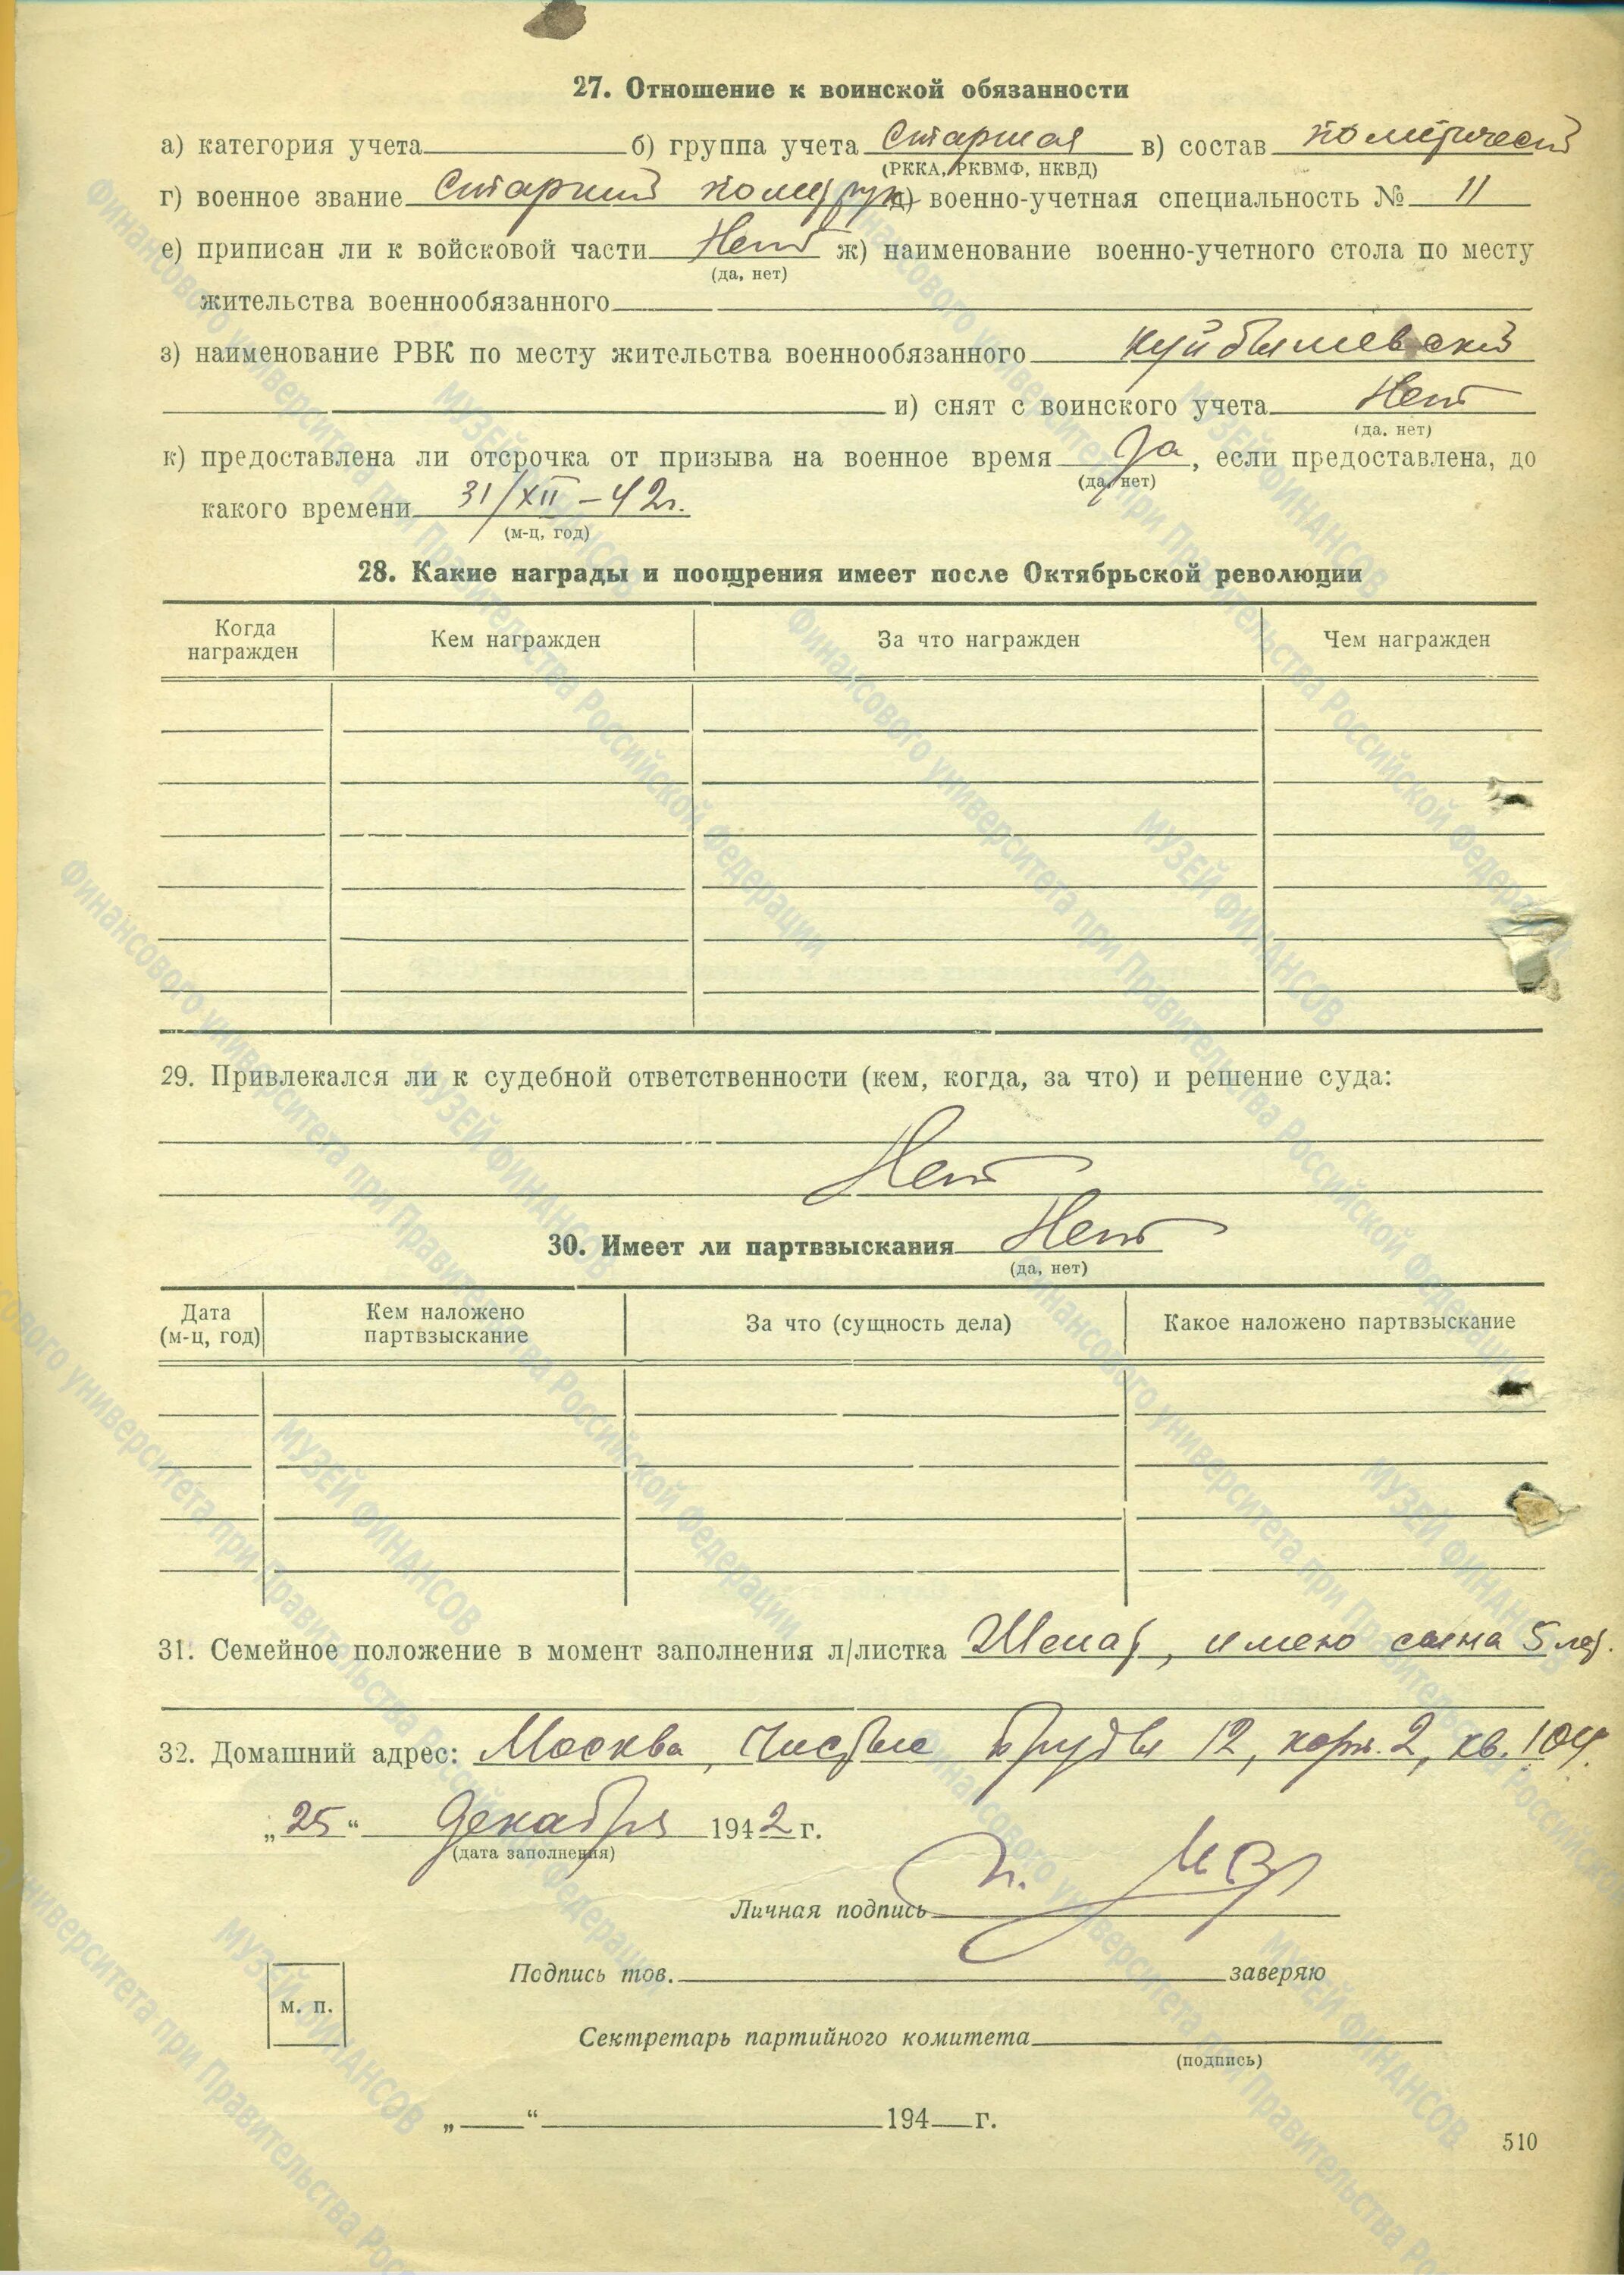 27. Отношение к воинской обязанности
а) категория учета б) группа учета Старшая в) состав политический
(РККА, РКВМФ, НКВД)
г) военное звание Старший политрук д) военно-учетная специальность № 11
е) приписан ли к войсковой части Нет ж) наименование военно-учетного стола по месту
(да, нет)
жительства военнообязанного
з) наименование РВК по месту жительства военнообязанного Куйбышевский
и) снят с воинского учета Нет
(да, нет)
к) предоставлена ли отсрочка от призыва на военное время Да, если предоставлена, до
(да, нет)
какого времени 31/XII-42г.
(м-ц, год)
28. Какие награды и поощрения имеет после Октябрьской революции
Когда награжден
Кем награжден
За что награжден
Чем награжден
29. Привлекался ли к судебной ответственности (кем, когда, за что) и решение суда:
Нет
30. Имеет ли партвзыскания Нет
(да, нет)
Дата (м-ц, год)
Кем наложено партвзыскание
За что (сущность дела)
Какое наложено партвзыскание
31. Семейное положение в момент заполнения л/листка Женат, имею сына 5 лет.
32. Домашний адрес: Москва, Чистые пруды 12, корп. 2, кв. 104.
„25“ Декабря 1942 г.
(дата заполнения)
Личная подпись
Подпись тов. заверяю
м. п.
Сектретарь партийного комитета
(подпись)
„ “ 194 г.
510
МУЗЕЙ ФИНАНСОВ
Финансового университета при Правительстве Российской Федерации